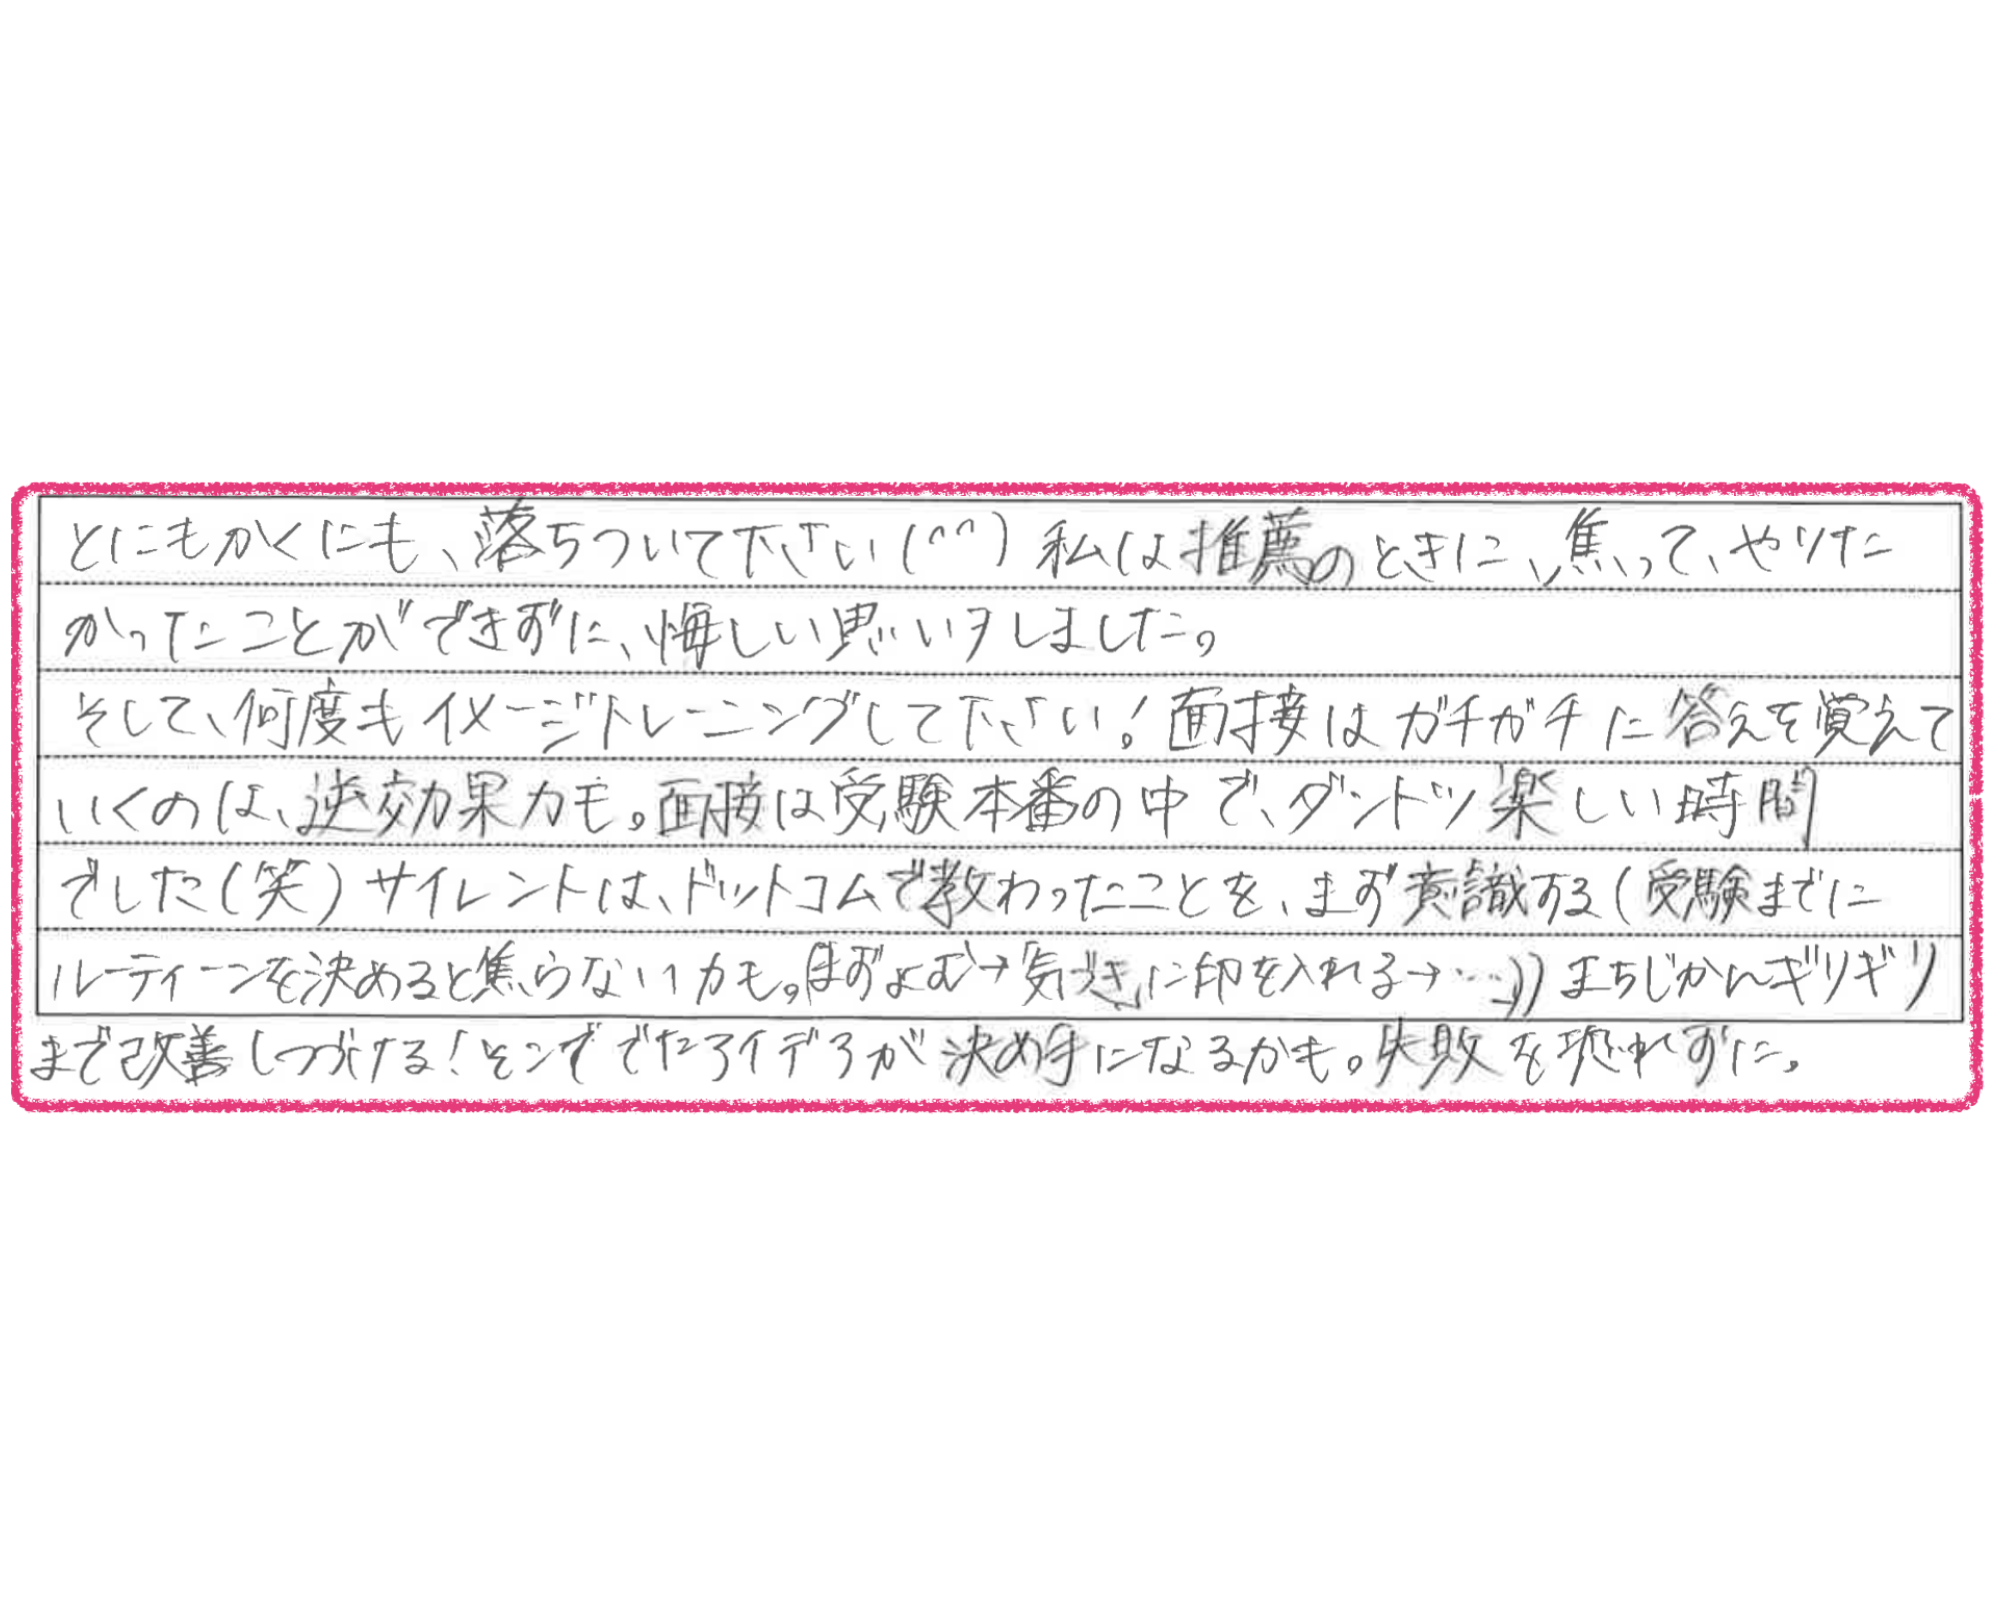 とにもかくにも、落ちついて下さい(^^) 私は推薦のときに、焦って、やりた
かったことができずに、悔しい思いをしました。
そして、何度もイメージトレーニングして下さい！面接はガチガチに答えを覚えて
いくのは、逆効果カモ。面接は受験本番の中で、ダントツ楽しい時間
でした(笑) サイレントは、ドットコムで教わったことを、まず意識する(受験までに
ルーティーンを決めると焦らないカモ。(まずよむ→「気づき」に印を入れる→…→)) まちじかんギリギリ
まで改善しつづける！そこででたアイデアが決め手になるかも。失敗を恐れずに。